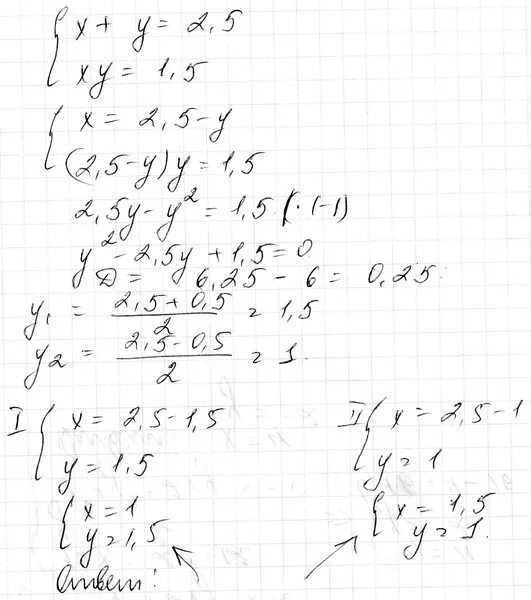 { x + y = 2,5
xy = 1,5
{ x = 2,5 - y
(2,5 - y) y = 1,5
2,5y - y² = 1,5 | · (-1)
y² - 2,5y + 1,5 = 0
D = 6,25 - 6 = 0,25.
y₁ = (2,5 + 0,5)/2 = 1,5
y₂ = (2,5 - 0,5)/2 = 1.
I { x = 2,5 - 1,5
y = 1,5
{ x = 1
y = 1,5
II { x = 2,5 - 1
y = 1
{ x = 1,5
y = 1.
Ответ: